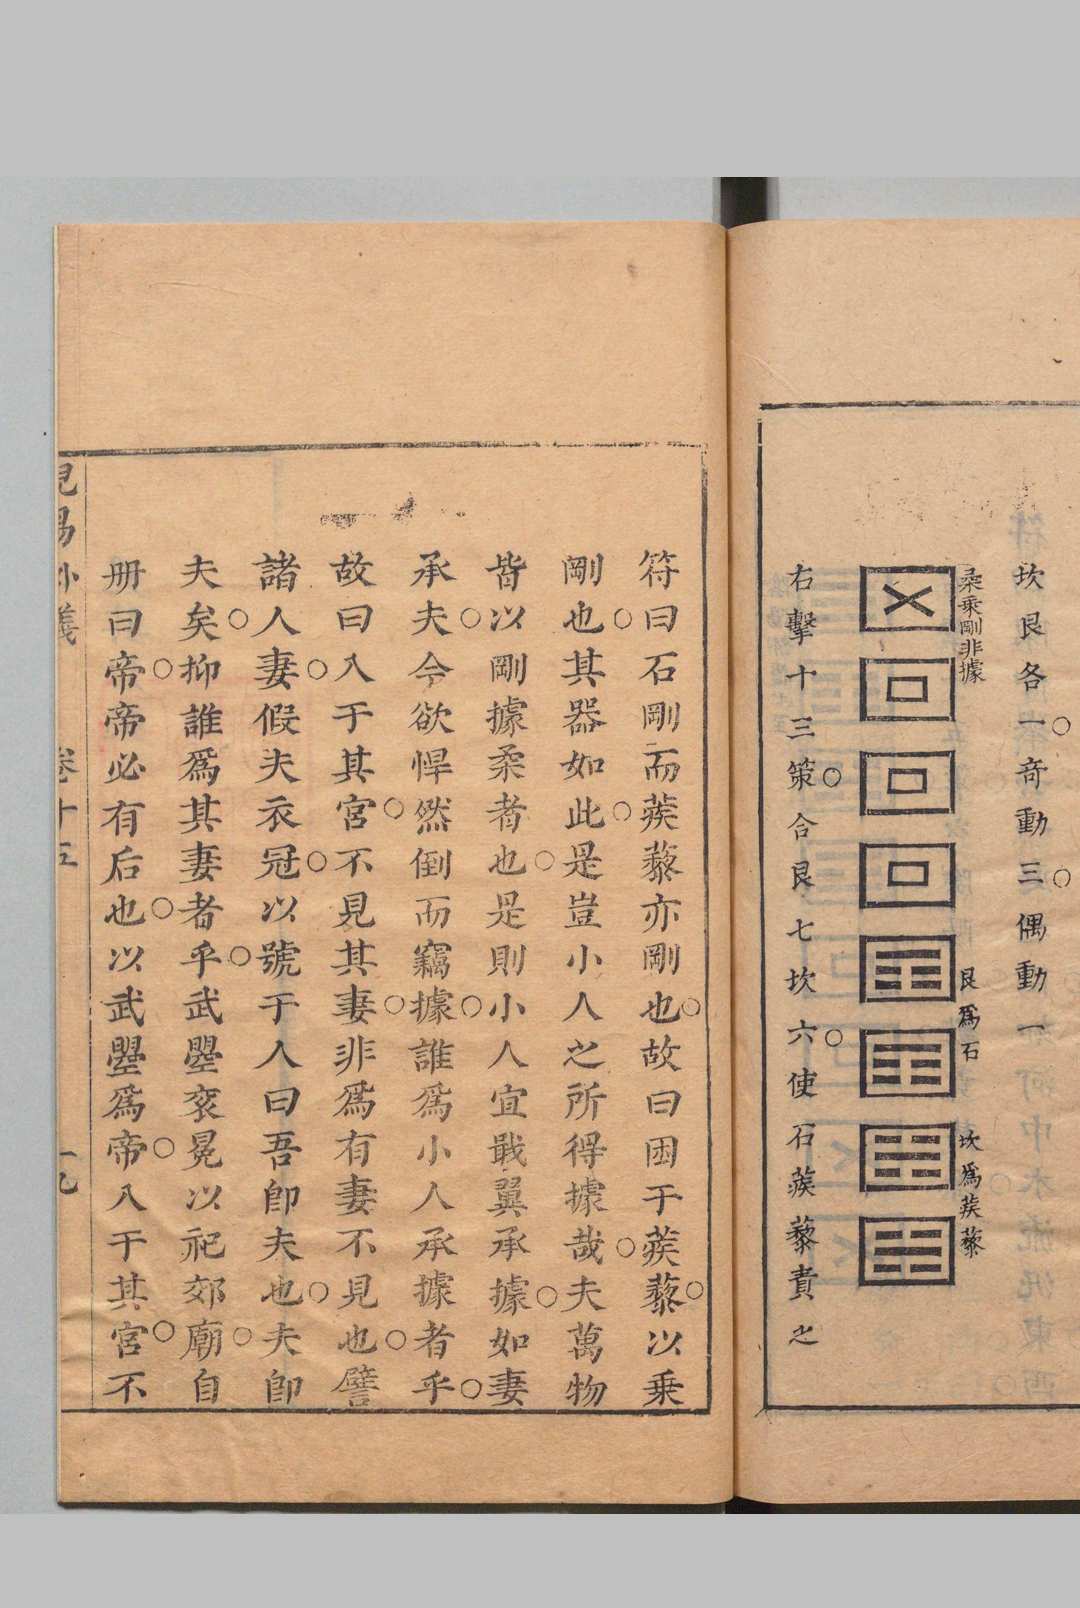 坎艮各一○奇動三○偶動一
柔乘剛非據
艮爲石
坎爲蒺藜
右擊十三策○合艮七坎六○使石蒺藜責之
符曰石剛而蒺藜亦剛也○故曰困于蒺藜○以乗
剛也○其器如此○是豈小人之所得據哉○夫萬物
皆以剛據柔者也○是則小人宜戢翼承據○如妻
承夫○今欲悍然倒而竊據○誰爲小人承據者乎○
故曰入于其宮○不見其妻○非爲有妻不見也○譬
諸人妻○假夫衣冠○以號于人曰吾卽夫也○夫卽
夫矣○抑誰爲其妻者乎○武曌袞冕以祀郊廟○自
册曰帝○帝必有后也○以武曌爲帝○入于其宮○不
見易外義
卷十五
十九